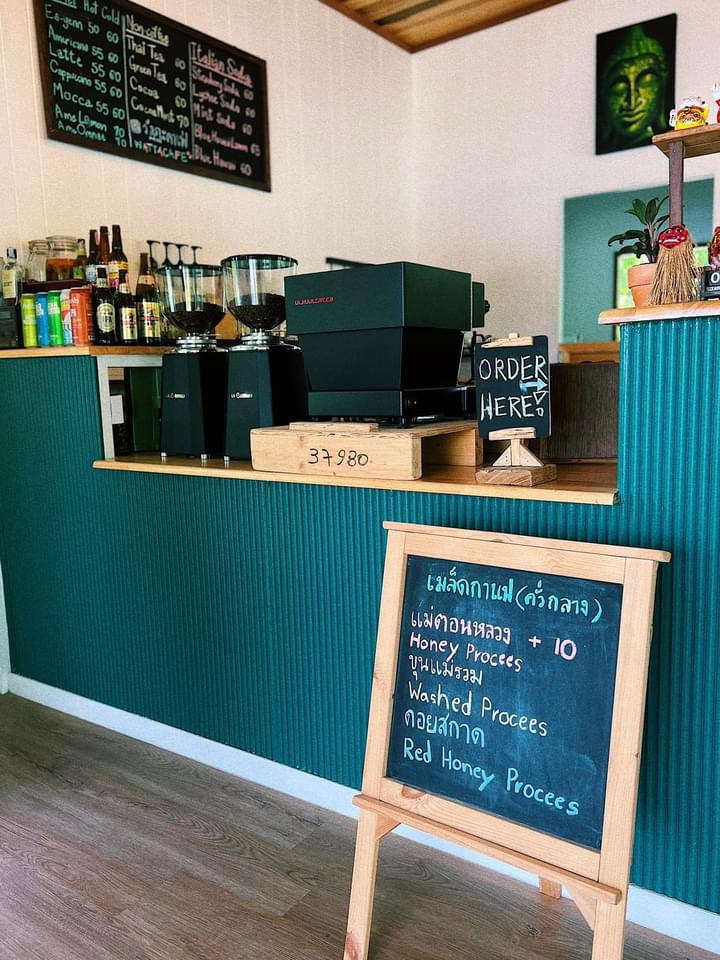 Hot Cold
Es-yenn 50 60
Americano 55 60
Latte 55 60
Cappuccino 55 60
Mocca 55 60
Ame Lemon 70
Ame Orange 70
Non-coffee
Thai Tea 60
Green Tea 60
Cocoa 60
Cocoa Mint 70
WATTACAFE
Italian Soda
Strawberry Soda 60
Lychee Soda 60
Mint Soda 60
Blue Hawaii Lemon 65
Blue Hawaii 60
ORDER
HERE!
37980
เมล็ดกาแฟ (คั่วกลาง)
แม่ตอนหลวง + 10
Honey Procees
ขุนแม่รวม
Washed Procees
ดอยสกาด
Red Honey Procees